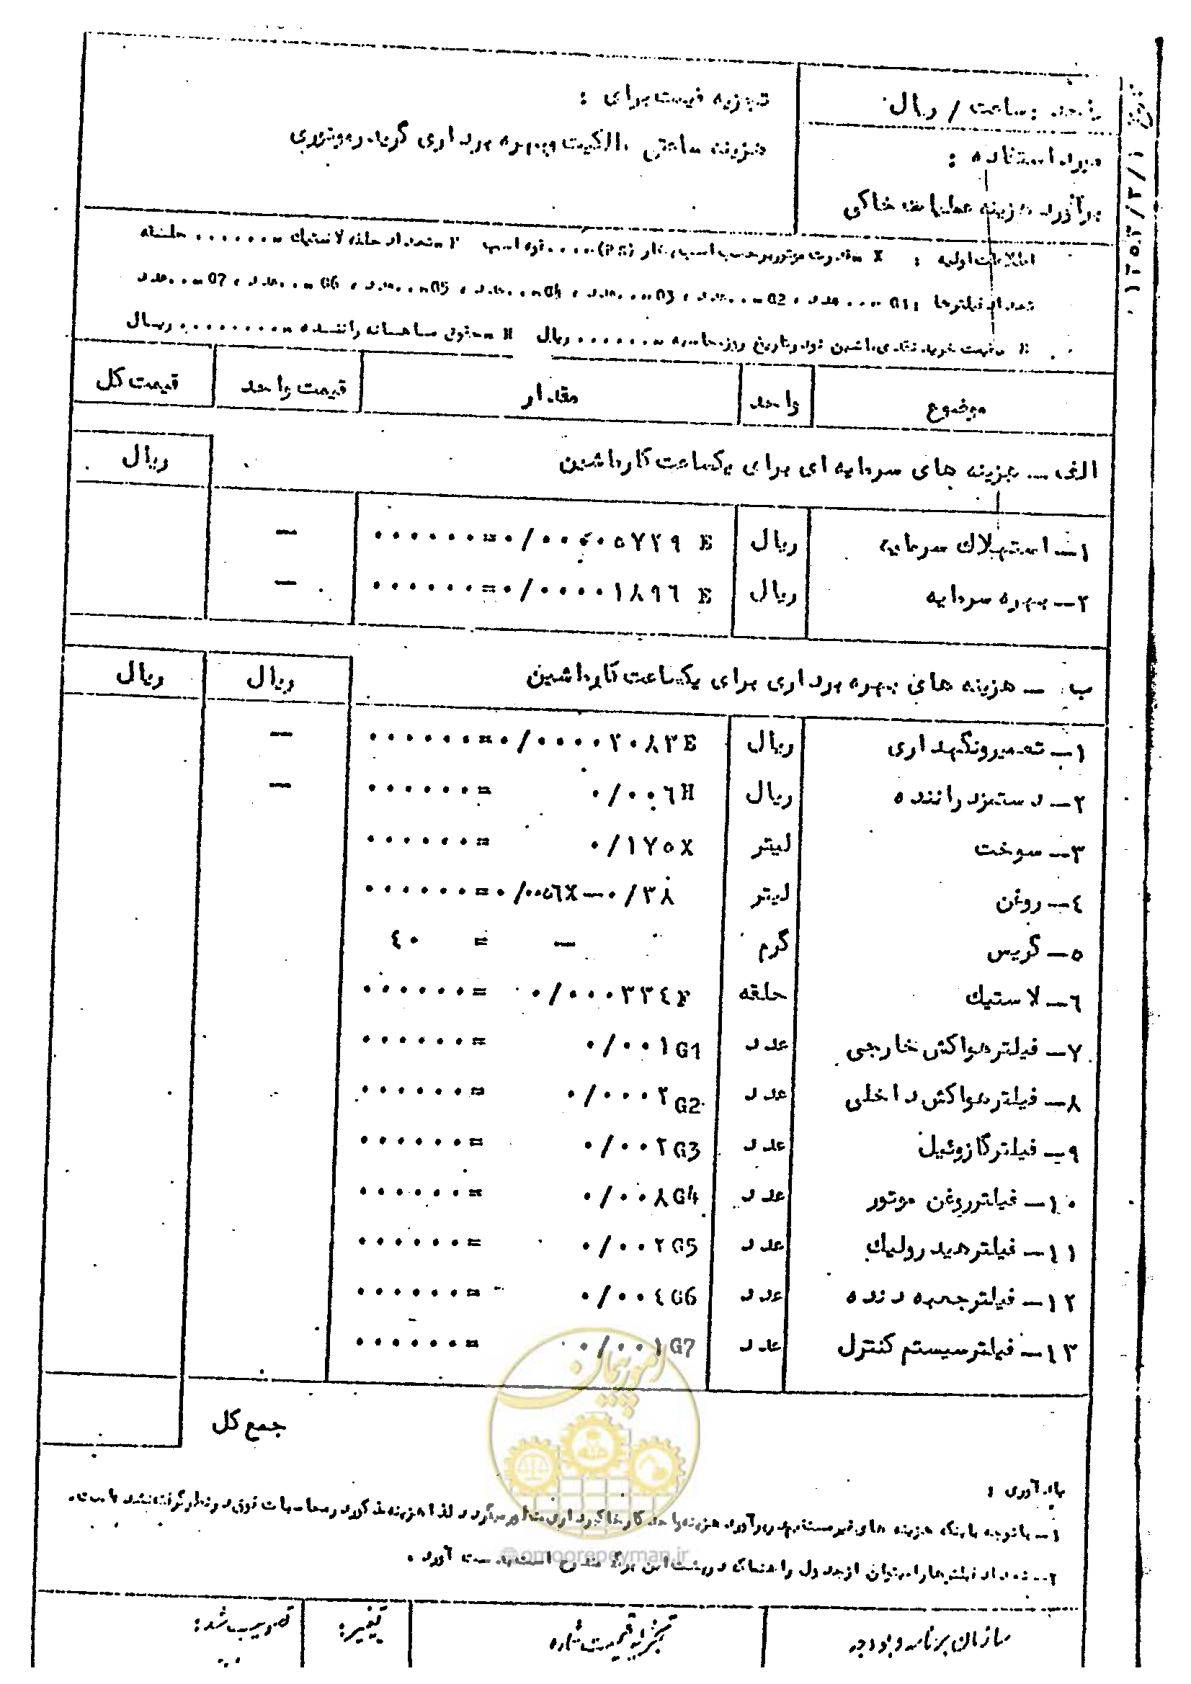 تاریخ ۱۳۵۳/۳/۱
واحد : ساعت / ریال
مورد استفاده :
برآورد هزینه عملیات خاکی
تجزیه قیمت برای :
هزینه ساعتی مالکیت و بهره برداری گریدر موتوری
اطلاعات اولیه : X = قدرت موتور بر حسب اسب بخار (PS) ..... قوه اسب F = تعداد حلقه لاستیک = ...... حلقه
تعداد فیلترها : G1 = ... عدد ، G2 = ... عدد ، G3 = ... عدد ، G4 = ... عدد ، G5 = ... عدد ، G6 = ... عدد ، G7 = ... عدد
E = قیمت خرید نقدی ماشین نو در تاریخ روز محاسبه = ....... ریال H = حقوق ماهیانه راننده = ........ ریال
موضوع واحد مقدار قیمت واحد قیمت کل
الف ـ هزینه های سرمایه ای برای یکساعت کار ماشین ریال
۱ـ استهلاک سرمایه ریال ۰/۰۰۰۰۵۷۲۹ E = ...... —
۲ـ بهره سرمایه ریال ۰/۰۰۰۰۱۸۹۶ E = ...... —
ب ـ هزینه های بهره برداری برای یکساعت کار ماشین ریال ریال
۱ـ تعمیر و نگهداری ریال ۰/۰۰۰۰۲۰۸۳E = ...... —
۲ـ دستمزد راننده ریال ۰/۰۰۶H = ...... —
۳ـ سوخت لیتر ۰/۱۷۵X = ......
۴ـ روغن لیتر ۰/۰۰۵۶X — ۰/۳۸ = ......
۵ـ گریس گرم — = ۴۰
۶ـ لاستیک حلقه ۰/۰۰۰۳۳۴F = ......
۷ـ فیلتر هواکش خارجی عدد ۰/۰۰۱G1 = ......
۸ـ فیلتر هواکش داخلی عدد ۰/۰۰۰۲G2 = ......
۹ـ فیلتر گازوئیل عدد ۰/۰۰۲G3 = ......
۱۰ـ فیلتر روغن موتور عدد ۰/۰۰۸G4 = ......
۱۱ـ فیلتر هیدرولیک عدد ۰/۰۰۲G5 = ......
۱۲ـ فیلتر جعبه دنده عدد ۰/۰۰۴G6 = ......
۱۳ـ فیلتر سیستم کنترل عدد ۰/۰۰۱G7 = ......
جمع کل
امور پیمان
یادآوری :
۱ـ با توجه باینکه هزینه های غیرمستقیم در برآورد هزینه واحد کار خاکبرداری منظور میگردد لذا هزینه مذکور در محاسبات فوق در نظر گرفته نشده است.
@omoorepeyman.ir
۲ـ تعداد فیلترها را میتوان از جدول راهنما که در پشت این برگ مندرج است بدست آورد .
سازمان برنامه و بودجه
تجزیه قیمت شماره
تغییر:
تصویب شد: